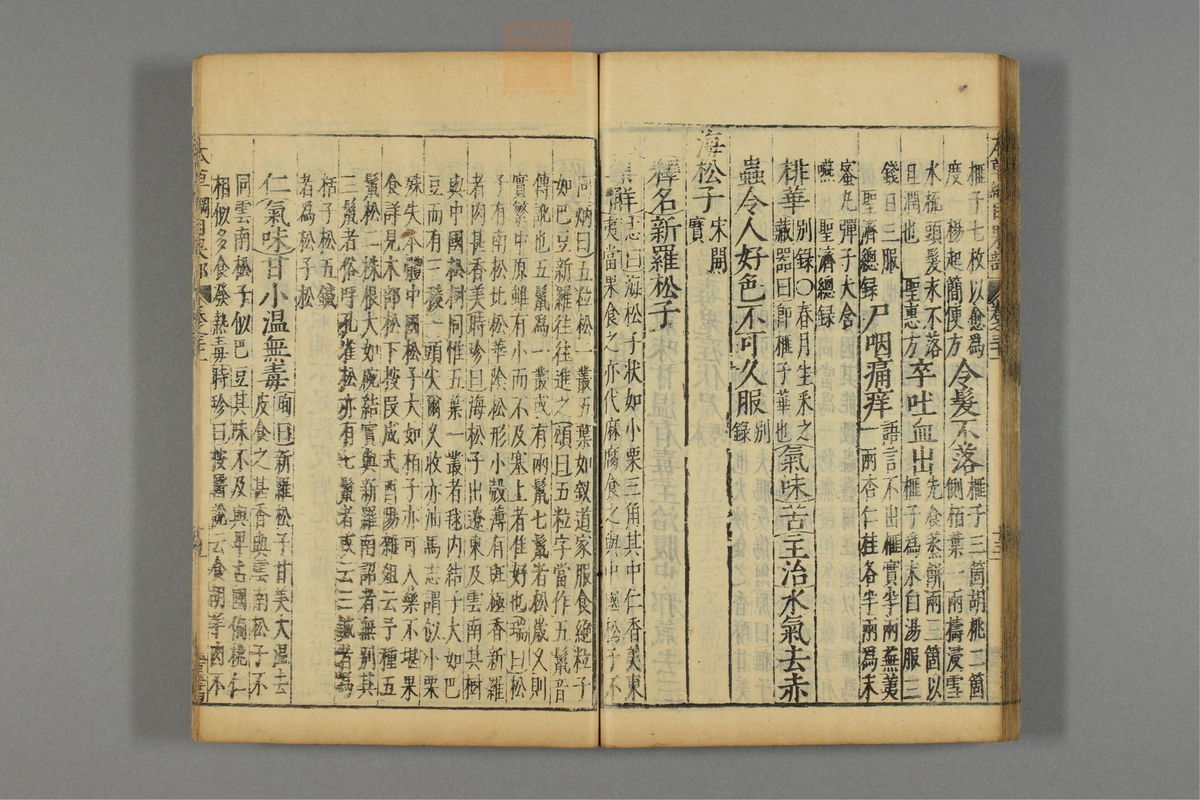 榧子七枚以愈爲
度 楊起簡便方
令髮不落
榧子三箇胡桃三箇
側柏葉一兩擣浸雪
水梳頭髮永不落
且潤也 聖惠方
卒吐血出
先食蒸餅兩三箇以
榧子爲末白湯服三
錢日三服
聖濟總錄
尸咽痛痒
語言不出榧實半兩蕪荑
一兩杏仁桂各半兩爲末
蜜丸彈子大含
嚥 聖濟總錄
榧華
別錄○春月生采之
藏器曰即榧子華也
氣味苦主治水氣去赤
蟲令人好色不可久服別錄
海松子宋開寶
釋名新羅松子
集解
志曰海松子狀如小栗三角其中仁香美東
夷當果食之亦代麻腐食之與中國松子不
同炳曰五粒松一叢五葉如釵道家服食絕粒子
如巴豆新羅往往進之頌曰五粒字當作五鬣音
傳訛也五鬣爲一叢或有兩鬣七鬣者松歲久則
實繁中原雖有小而不及塞上者佳好也瑞曰松
子有南松北松華陰松形小殼薄有斑極香新羅
者肉甚香美時珍曰海松子出遼東及雲南其樹
與中國松樹同惟五葉一叢者毬内結子大如巴
豆而有三稜一頭尖爾久收亦油馬志謂似小栗
殊失本體中國松子大如柏子亦可入藥不堪果
食詳見木部松下按段成式酉陽雜俎云予種五
鬣松二株根大如碗結實與新羅南詔者無別其
三鬣者俗呼孔雀松亦有七鬣者或云三鍼者爲
栝子松五鍼
者爲松子松
仁氣味甘小温無毒
珣曰新羅松子甘美大温去
皮食之甚香與雲南松子不
同雲南松子似巴豆其味不及與卑占國偏桃仁
相似多食發熱毒時珍曰按醫說云食胡羊肉不
本草綱目果部 卷之三十一